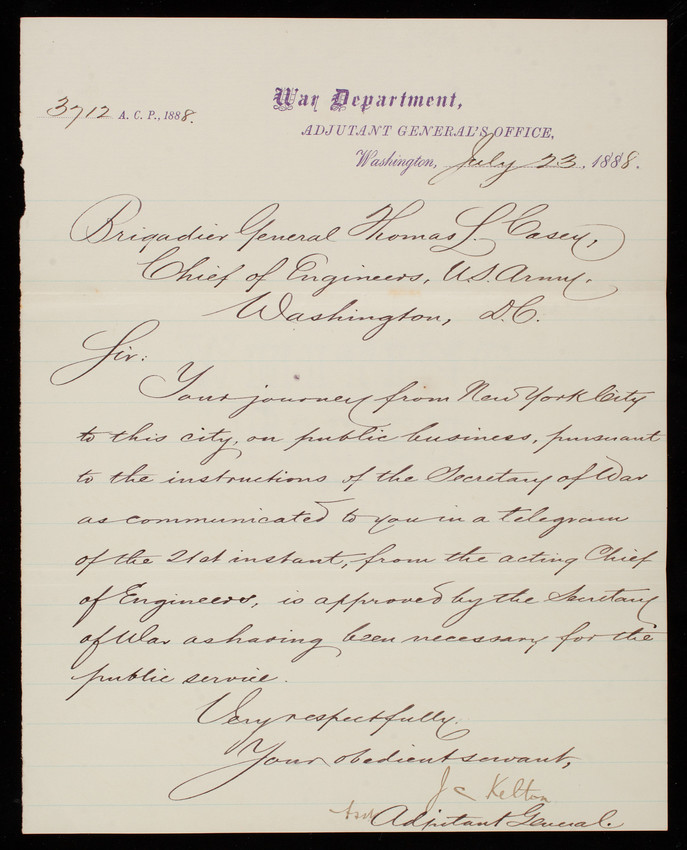 War Department,
3712 A. C. P., 1888.
ADJUTANT GENERAL'S OFFICE,
Washington, July 23, 1888.
Brigadier General Thomas L. Casey,
Chief of Engineers, U.S. Army.
Washington, D.C.
Sir:
Your journey from New York City
to this city, on public business, pursuant
to the instructions of the Secretary of War
as communicated to you in a telegram
of the 21st instant, from the acting Chief
of Engineers, is approved by the Secretary
of War as having been necessary for the
public service.
Very respectfully.
Your obedient servant,
J C Kelton
Asst Adjutant General.